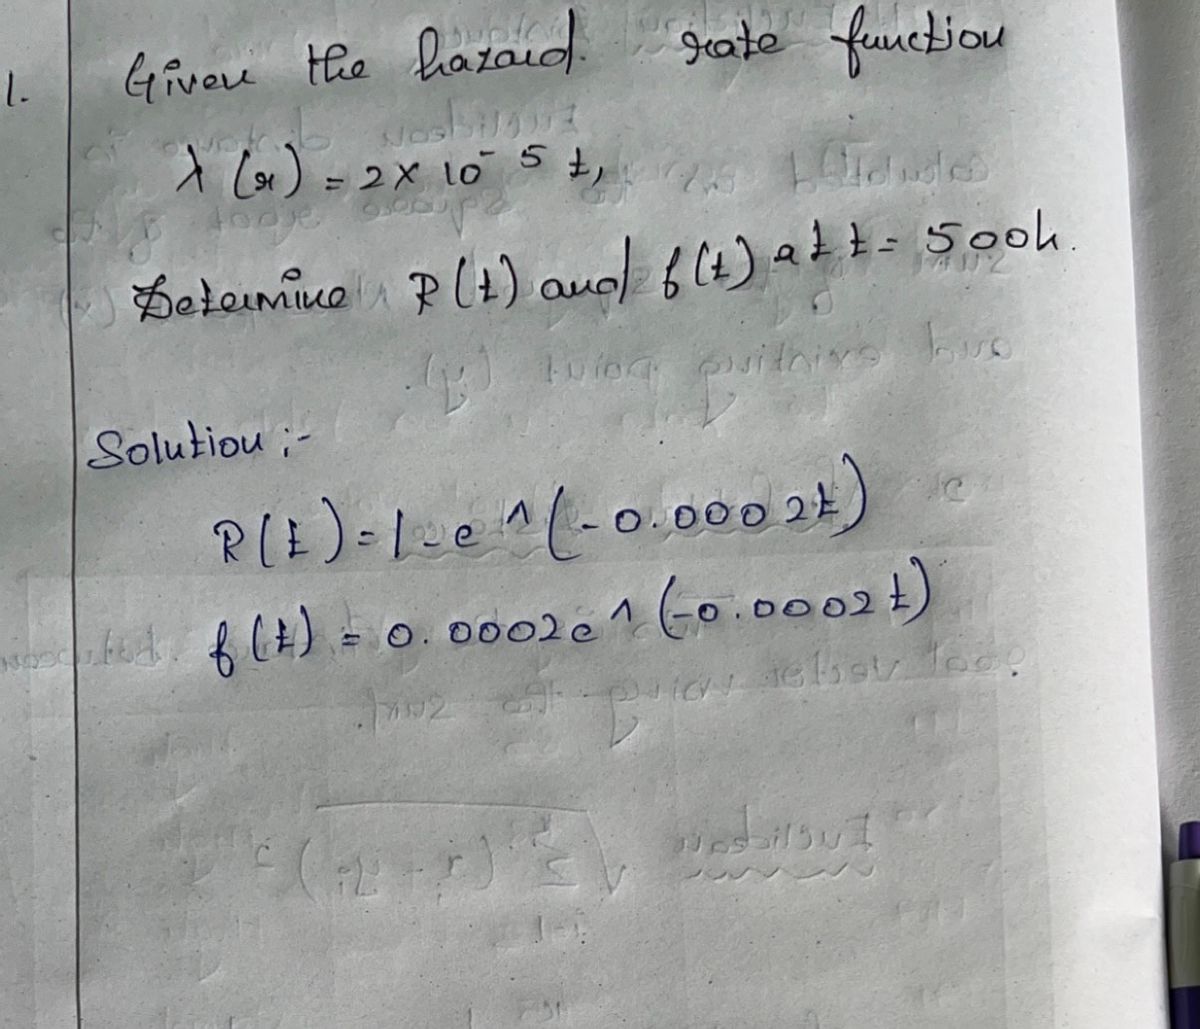 1. Given the hazard. rate function
λ(x) = 2 x 10⁻ 5 t,
Determine R(t) and f(t) at t = 500h.
Solution :-
R(t) = 1 - e ^ (-0.0002t)
f(t) = 0.0002e ^ (-0.0002t)